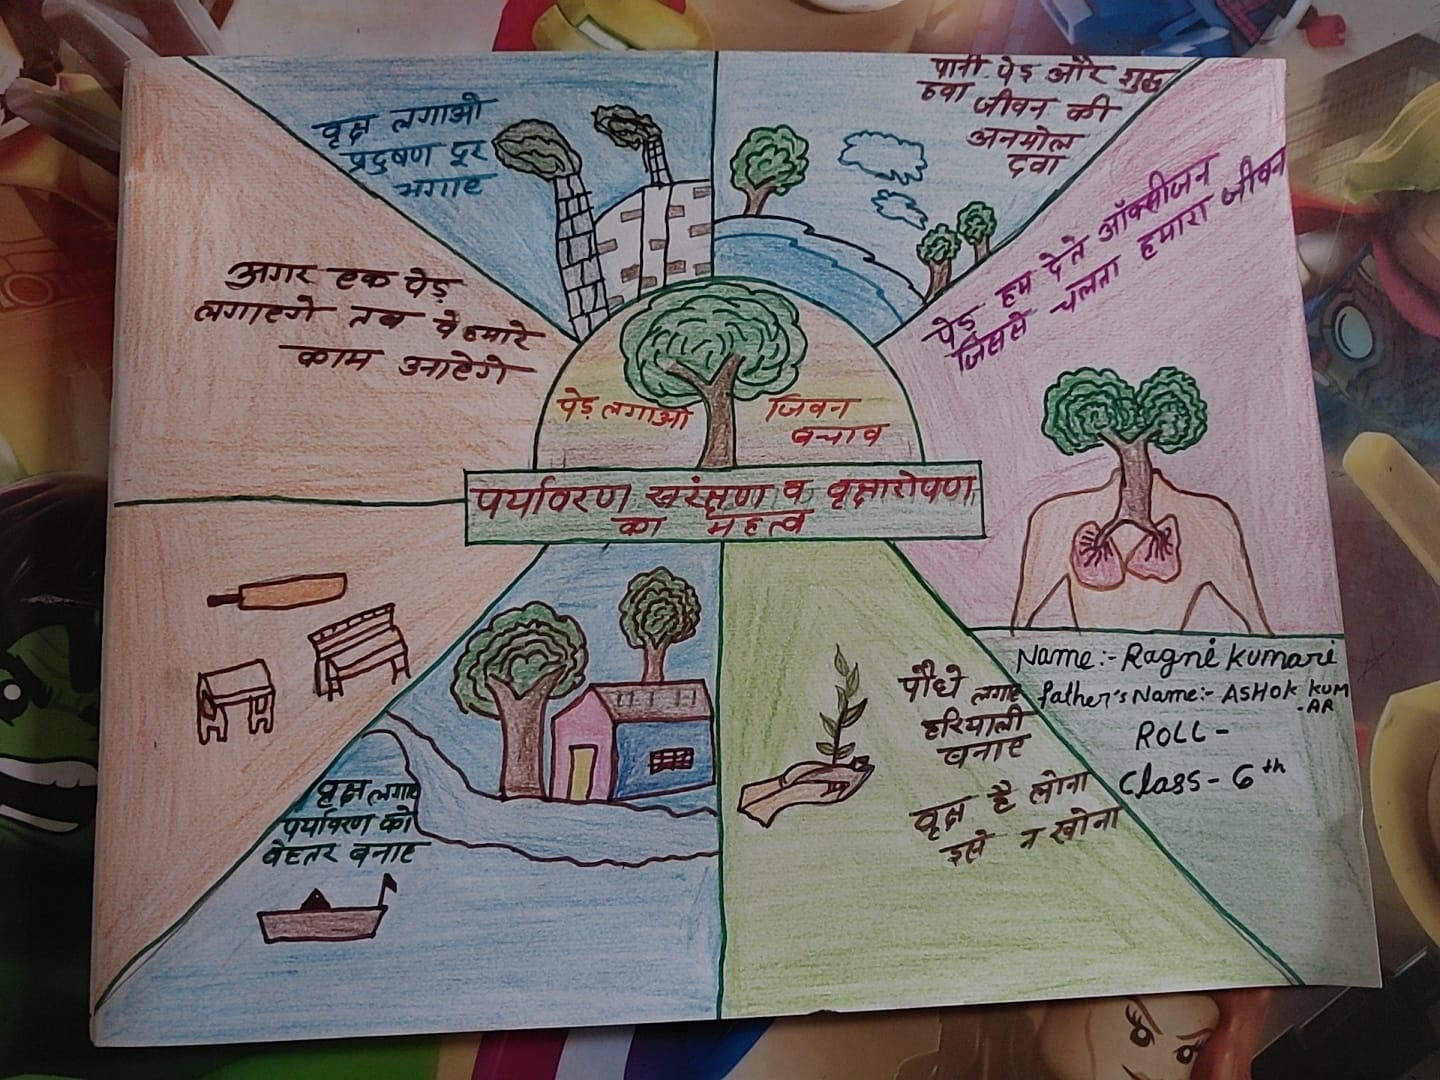 वृक्ष लगाओ
प्रदुषण दुर
भगाए
पानी पेड़ और शुद्ध
हवा जीवन की
अनमोल
दवा
अगर एक पेड़
लगाएगे तब वे हमारे
काम आऐगे
पेड़ हम देते ऑक्सीजन
जिससे चलता हमारा जीवन
पेड़ लगाओ
जिवन
बचाव
पर्यावरण संरक्षण व वृक्षारोपण
का महत्व
वृक्ष लगाए
पर्यावरण को
बेहतर बनाए
पौधे लगाए
हरियाली
बनाए
वृक्ष है सोना
इसे न खोना
Name:- Ragni kumari
father's Name:- ASHOK KUM
-AR
ROLL -
Class - 6th